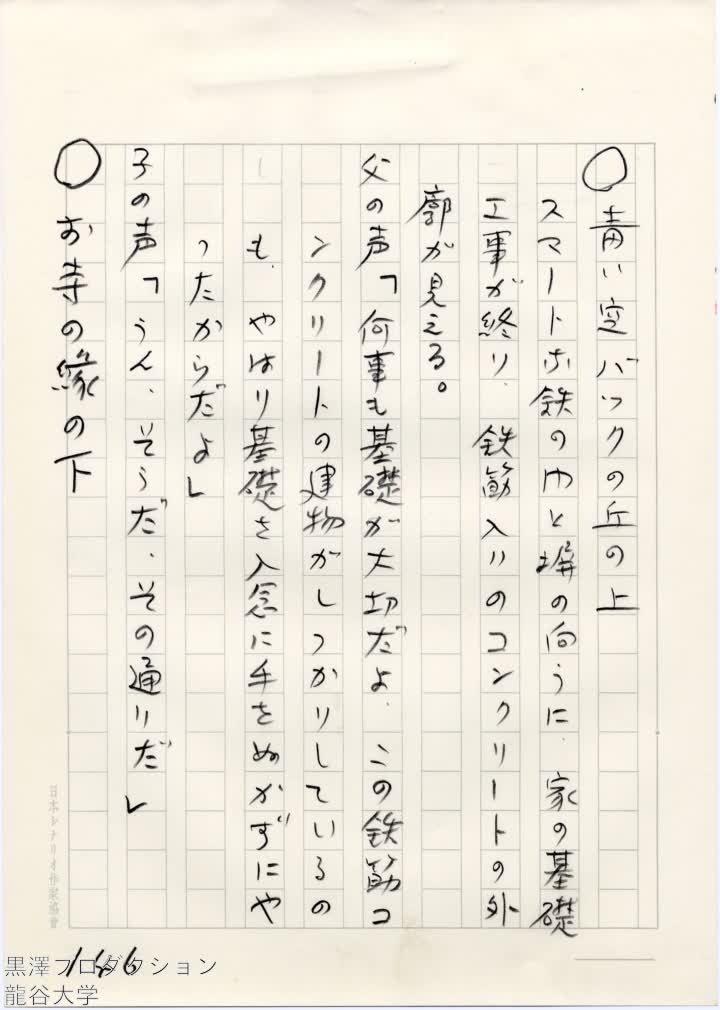 ○青い空バックの丘の上
スマートな鉄の門と塀の向うに、家の基礎
工事が終り、鉄筋入りのコンクリートの外
廓が見える。
父の声「何事も基礎が大切だよ、この鉄筋コ
ンクリートの建物がしっかりしているの
も、やはり基礎を入念に手をぬかずにや
ったからだよ」
子の声「うん、そうだ、その通りだ」
○お寺の縁の下
日本シナリオ作家協會
146
黒澤プロダクション
龍谷大学